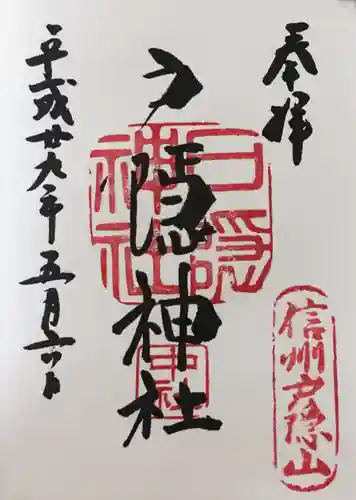 奉拝
戸隠神社
平成廿九年五月六日
戸隠
神社
中社
信州戸隠山